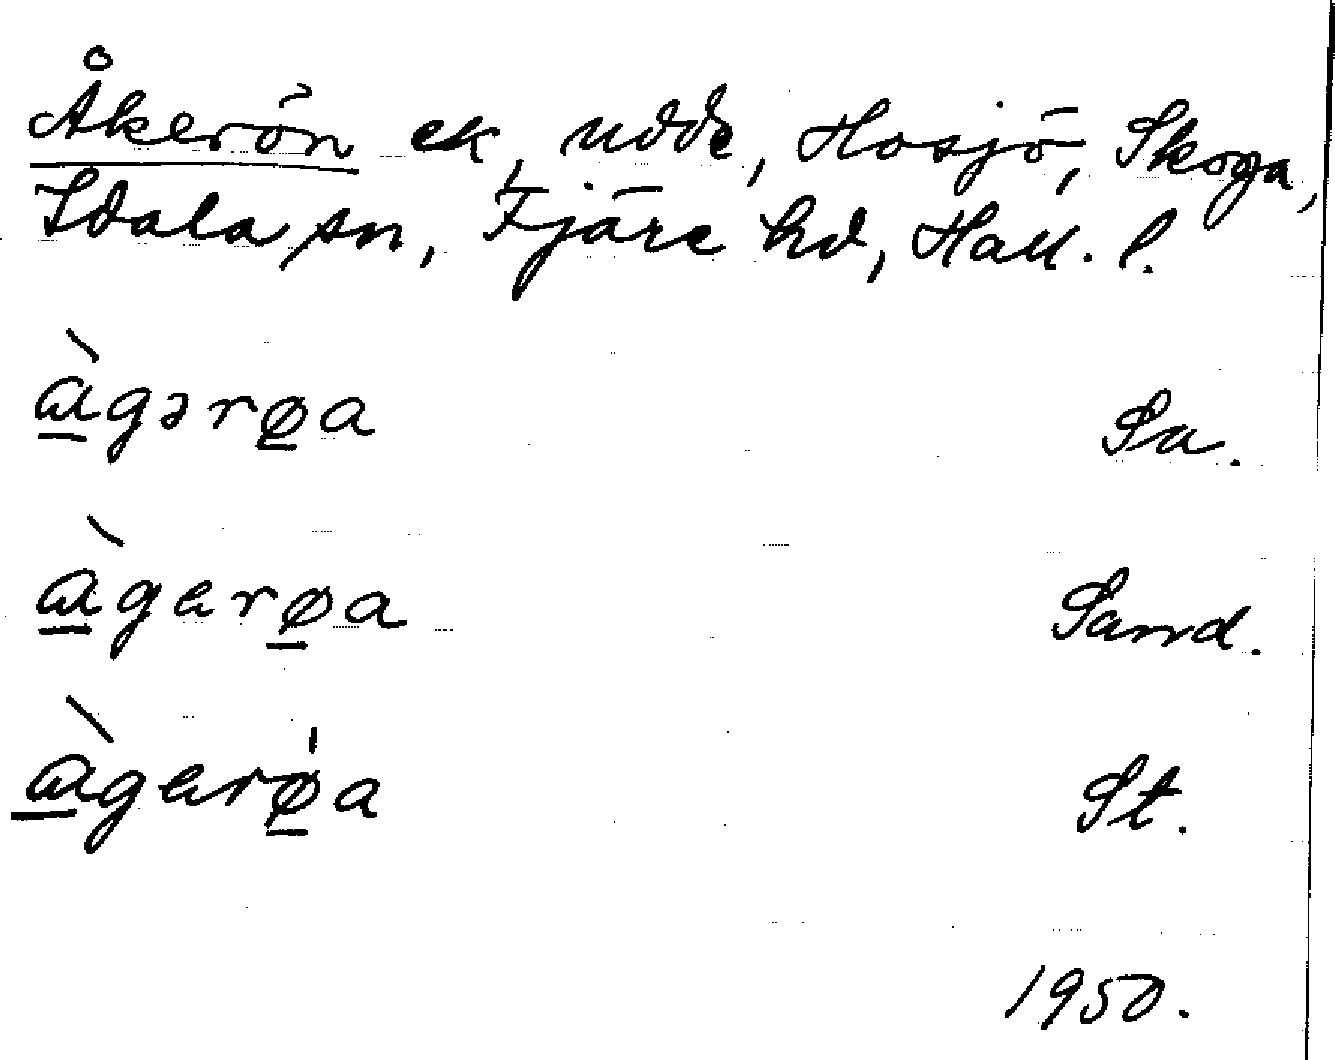 Åkerön ek, udde, Hosjö, Skoga,
Idala sn, Fjäre hd, Hall. l.
àgərøa Sa.
àgerøa Sand.
àgerǿa St.
1950.